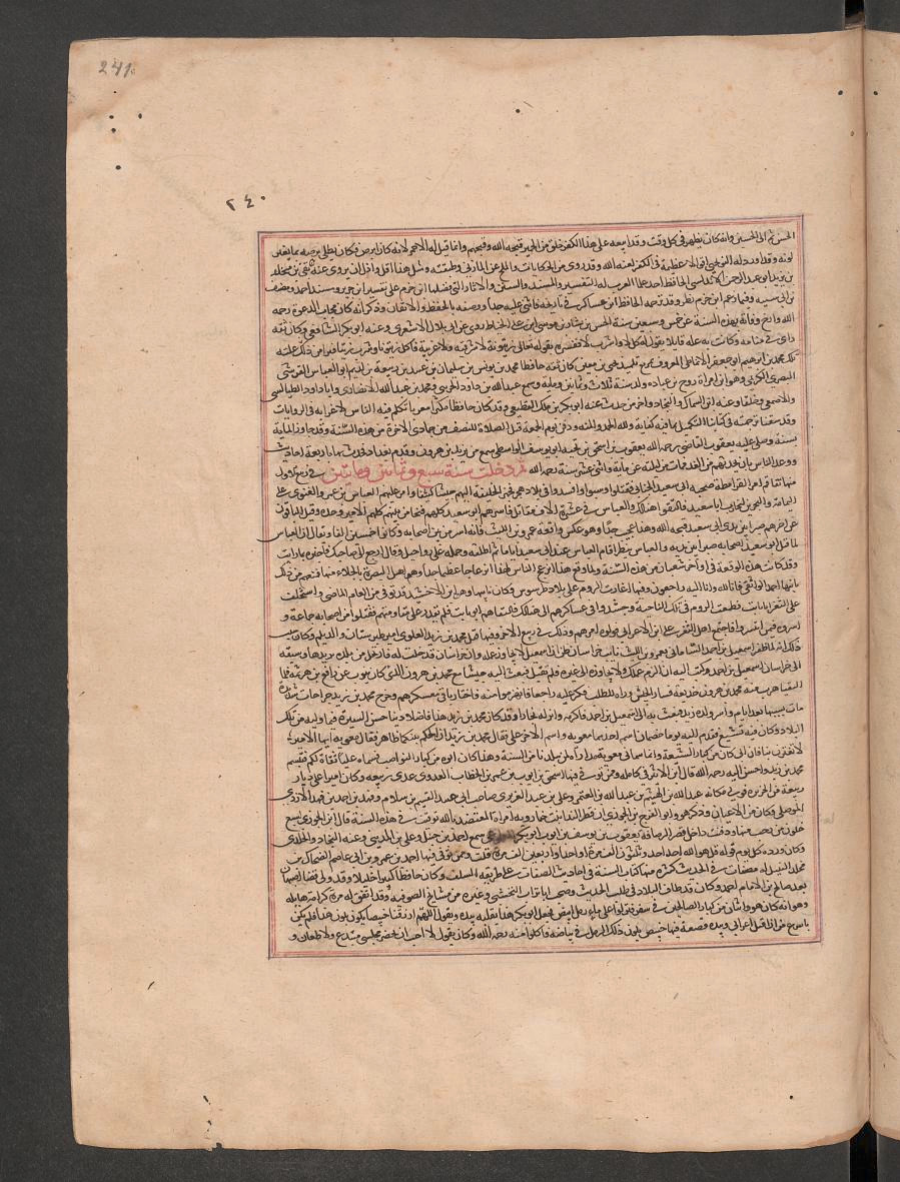 241
٢٤٠
الحسن ثم الى الحسين وانه كان يظهر في كل وقت وقد اتبعه على هذا الكفر خلق من الحمر قبحه الله وقبحهم وانما قيل له الاحمر لانه كان ابرص فكان يطلي برصه بما يغير
لونه وقد اورد له النوبختي اقوالا عظيمة في الكفر لعنه الله وقد روى من الحكايات والملح عن المازني وطبقته ومثل هذا اقل واذل ان يروى عنه بقي بن مخلد
بن يزيد ابو عبد الرحمن الاندلسي الحافظ احد علماء الغرب له التفسير والمسند والسنن والاثار التي فضلها ابن حزم على تفسير ابن جرير ومسند احمد ومصنف
بن ابي شيبة وفيما زعم ابن حزم نظر وقد ترجمه الحافظ ابن عساكر في تاريخه فاثنى عليه جدا ووصفه بالحفظ والاتقان وذكر انه كان مجاب الدعوة رحمه
الله وارخ وفاته بهذه السنة عن خمس وسبعين سنة الحسن بن بشار بن موسى ابو علي الخياط روى عن ابي بلال الاشعري وعنه ابو بكر الشافعي وكان ثقة
راى في منامه وكانت به علة قايلا يقول له كل لا واشرب لا ففسره بقوله تعالى زيتونة لا شرقية ولا غربية فاكل زيتونا وشرب زيتا فبرأ من ذلك علته
تلك محمد بن ابراهيم ابو جعفر الانماطي المعروف بمربع تلميذ يحيى بن معين كان ثقة حافظا محمد بن يونس بن موسى بن سليمان بن عبيد بن ربيعة بن كديم ابو العباس القرشي
البصري الكديمي وهو ابن امراة روح بن عبادة ولد سنة ثلاث وثمانين ومائة وسمع عبد الله بن داود الخريبي ومحمد بن عبد الله الانصاري وابا داود الطيالسي
والاصمعي وخلقا وعنه ابن السماك والنجاد واخر من حدث عنه ابو بكر بن مالك القطيعي وقد كان حافظا مكثرا مغربا تكلم فيه الناس لاغرابه في الروايات
وقد سقنا ترجمته في كتابنا التكميل بما فيه كفاية ولله الحمد والمنة ودفن يوم الجمعة قبل الصلاة للنصف من جمادى الاخرة من هذه السنة وقد جاوز المائة
بسنة وصلى عليه يوسف القاضي رحمه الله يعقوب بن اسحق بن تحية ابو يوسف الواسطي سمع من يزيد بن هرون وقدم بغداد فحدث بها باربعة احاديث
ووعد الناس بان يحدثهم من الغد فمات من ليلته عن مائة واثنتي عشرة سنة رحمه الله ثم دخلت سنة سبع وثمانين ومائتين في ربيع الاول
منها تفاقم امر القرامطة صحبة ابي سعيد الجنابي فقتلوا وسبوا وافسدوا في بلاد هجر فجهز الخليفة اليهم جيشا كثيفا وامر عليهم العباس بن عمرو الغنوي على
اليمامة والبحرين ليحارب ابا سعيد فالتقوا هنالك والعباس في عشرة الاف مقاتل فاسرهم ابو سعيد كلهم فنجا من بينهم كلهم الامير وحده وقتل الباقون
عن اخرهم صبرا بين يدي ابي سعيد قبحه الله وهذا عجيب جدا وهو عكس واقعة عمرو بن الليث فانه اسر من بين اصحابه وكانوا خمسين الفا ويقال ان العباس
لما قتل ابو سعيد اصحابه صبرا بين يديه والعباس ينظر اقام العباس عند ابي سعيد اياما ثم اطلقه وحمله على رواحل وقال ارجع الى صاحبك فاخبره بما رايت
وقد كانت هذه الوقعة في اواخر شعبان من هذه السنة ولما وقع هذا انزعج الناس لهذا انزعاجا عظيما جدا وهم اهل البصرة بالجلاء منها فمنعهم من ذلك
نايبها احمد الواثقي فانا لله وانا اليه راجعون وفيها اغارت الروم على بلاد طرسوس وكان نايبها وهو ابن الاخشيد قد توفي في العام الماضي واستخلف
على الثغر ابا ثابت فطمعت الروم في تلك الناحية وحشدوا في عساكرهم الى هنالك فلقيناهم ابو ثابت فلم يقدر على مقاومتهم فقتلوا من اصحابه جماعة و
اسروه فيمن اسروا فاجتمع اهل الثغر على ابن الاعرابي فولوه امرهم وذلك في ربيع الاخر وفيها قتل محمد بن زيد العلوي امير طبرستان والديلم وكان سبب
ذلك انه لما ظفر اسمعيل بن احمد الساماني بعمرو بن الليث نايب خراسان ظن ان اسمعيل لا يجاوز عمله وان خراسان قد خلت له فارتحل من بلده يريدها وسبقه
الى خراسان اسمعيل بن احمد وكتب اليه ان الزم عملك ولا تتجاوزه الى غيره فلم يقبل فبعث اليه جيشا مع محمد بن هرون الذي كان ينوب عن رافع بن هرثمة فلما
التقيا هرب منه محمد بن هرون خديعة فسار الجيش وراءه للطلب فكر عليه راجعا فانهزموا منه فاخذ ما في معسكرهم وجرح محمد بن زيد جراحات شديدة
مات بسببها بعد ايام واسر ولده زيد فبعث به الى اسمعيل بن احمد فاكرمه وانزله بخارا وقد كان محمد بن زيد هذا فاضلا دينا حسن السيرة فيما وليه من تلك
البلاد وكان فيه تشيع فقدم اليه يوما خصمان اسم احدهما معوية واسم الاخر علي فقال محمد بن زيد ان الحكم بينكما ظاهر فقال معوية ايها الامير
لا تغترن بنا فان ابي كان من كبار الشيعة وانما سماني معوية مداراة لمن ببلدنا من السنة وهذا كان ابوه من كبار النواصب فسماه عليا تقاة لكم فتبسم
محمد بن زيد واحسن اليه رحمه الله قال ابن الاثير في كامله وممن توفي فيها اسحق بن ايوب بن عمر بن الخطاب العدوي عدي ربيعة وكان اميرا على ديار
ربيعة من الجزيرة فولي مكانه عبد الله بن الهيثم بن عبد الله بن المعتمر وعلي بن عبد العزيز البغوي صاحب ابي عبيد القسم بن سلام وفهد بن احمد بن فهد الازدي
الموصلي وكان من الاعيان وذكر هو وابو الفرج بن الجوزي ان قطر الندى بنت خمارويه امراة المعتضد بالله توفيت في هذه السنة قال ابن الجوزي لسبع
خلون من رجب منها ودفنت داخل قصر الرصافة يعقوب بن يوسف بن ايوب ابو بكر المطوعي سمع احمد بن حنبل وعلي بن المديني وعنه النجاد والخلدي
وكان ورده كل يوم قراة قل هو الله احد احد وثلثون الف مرة او احدا واربعين الف مرة قلت وممن توفي فيها احمد بن عمرو بن ابي عاصم الضحاك بن
مخلد النبيل له مصنفات في الحديث كثيرة منها كتاب السنة في احاديث الصفات على طريقة السلف وكان حافظا كبيرا جليلا وقد ولي قضا اصبهان
بعد صالح بن الامام احمد وكان قد طاف البلاد في طلب الحديث وصحب ابا تراب النخشبي وغيره من مشايخ الصوفية وقد اتفق له مرة كرامة هايلة
وهو انه كان هو واثنان من كبار الصالحين في سفر فنزلوا على رمل ابيض فجعل ابو بكر هذا يقلبه بيده ويقول اللهم ارزقنا خبيصا يكون بلون هذا فلم يكن
باسرع من ان اقبل اعرابي وبيده قصعة فيها خبيص بلون ذلك الرمل في بياضه فاكلوا منه رحمه الله وكان يقول لا احب ان يحضر مجلسي مبتدع ولا طعان و